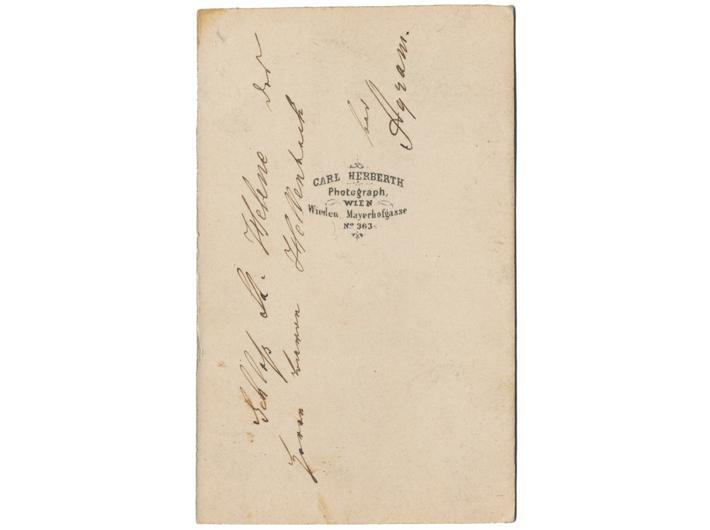 Schloß St. Helene des
Herrn Baron Hellenbach
bei
Agram.
CARL HERBERTH
Photograph,
WIEN
Wieden, Mayerhofgasse
No 363